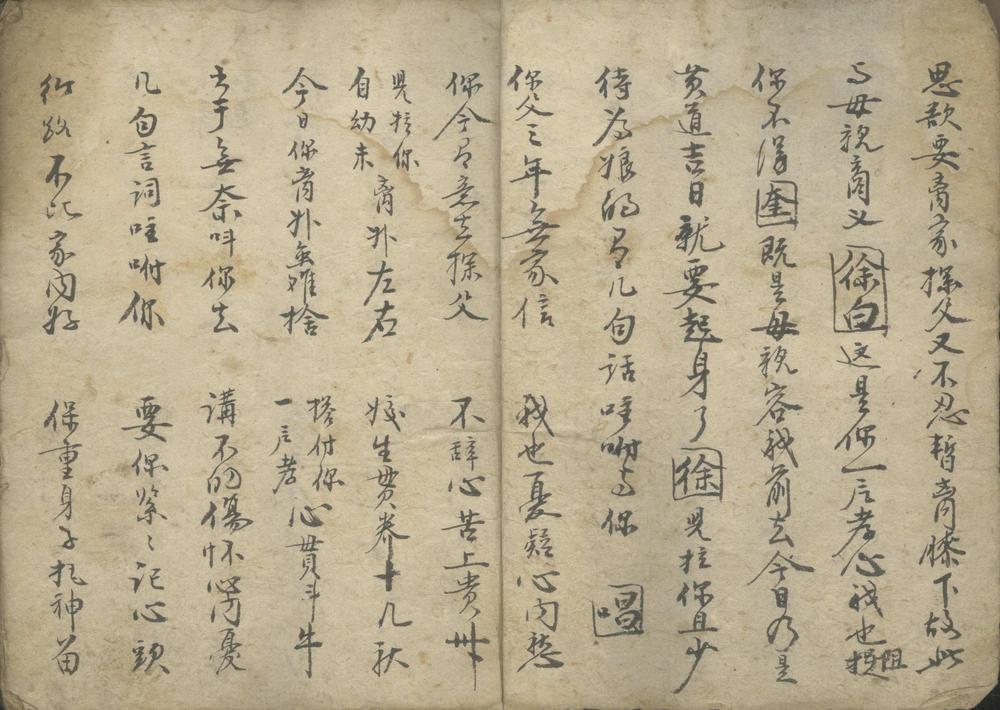 思欲要离家探父又不忍暫离膝下故此
与母親商义徐白这是你一片孝心我也阻
你不得奎既是母親容我前去今日乃是
黄道吉日就要起身了徐児拉你且少
待为娘的有几句話咐与你唱
你父三年無家信 我也憂疑心内愁
你今有意去探父 不辞心苦上贵州
児拉你自幼未离外左右 嬌生貫养十几秋
今日你离外無难捨 搭付你一片孝心貫斗牛
出于無奈叫你去 講不的傷怀心内憂
几句言詞咐你 要你紧〻記心頭
行路不比家内好 保重身子扎神苗